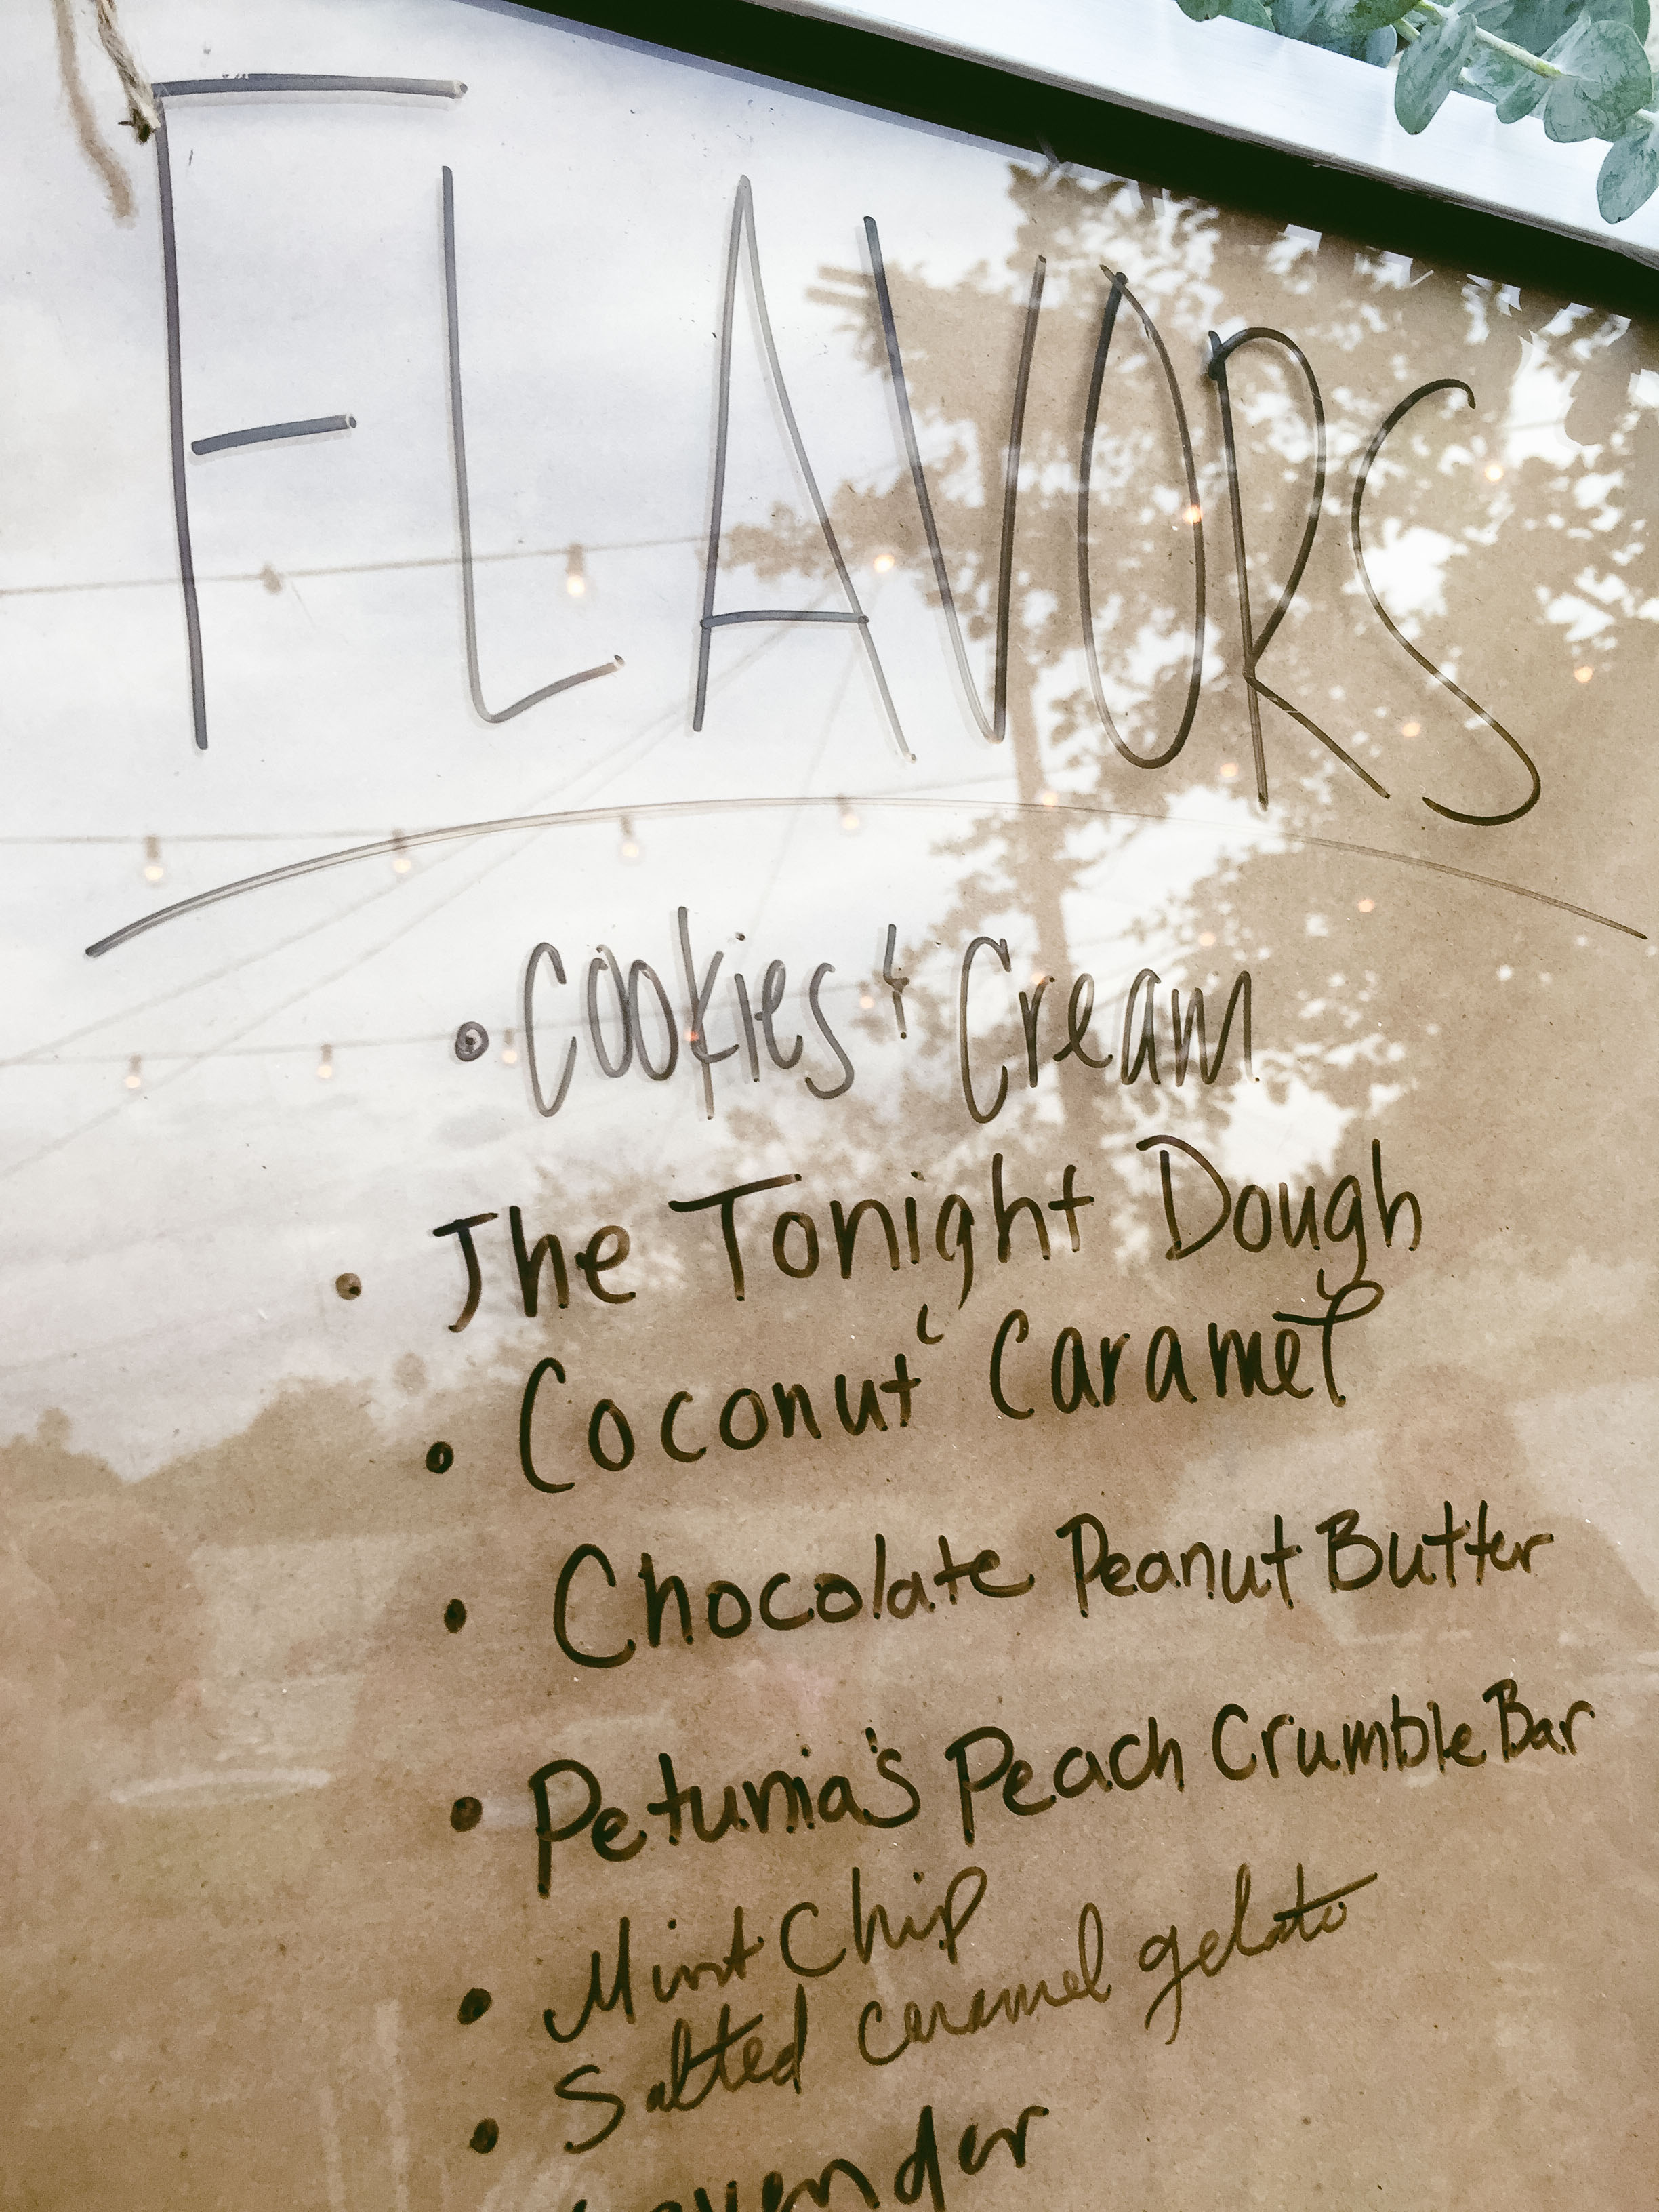 FLAVORS
• Cookies & Cream
• The Tonight Dough
• Coconut Caramel
• Chocolate Peanut Butter
• Petunia's Peach Crumble Bar
• Mint Chip
• Salted caramel gelato